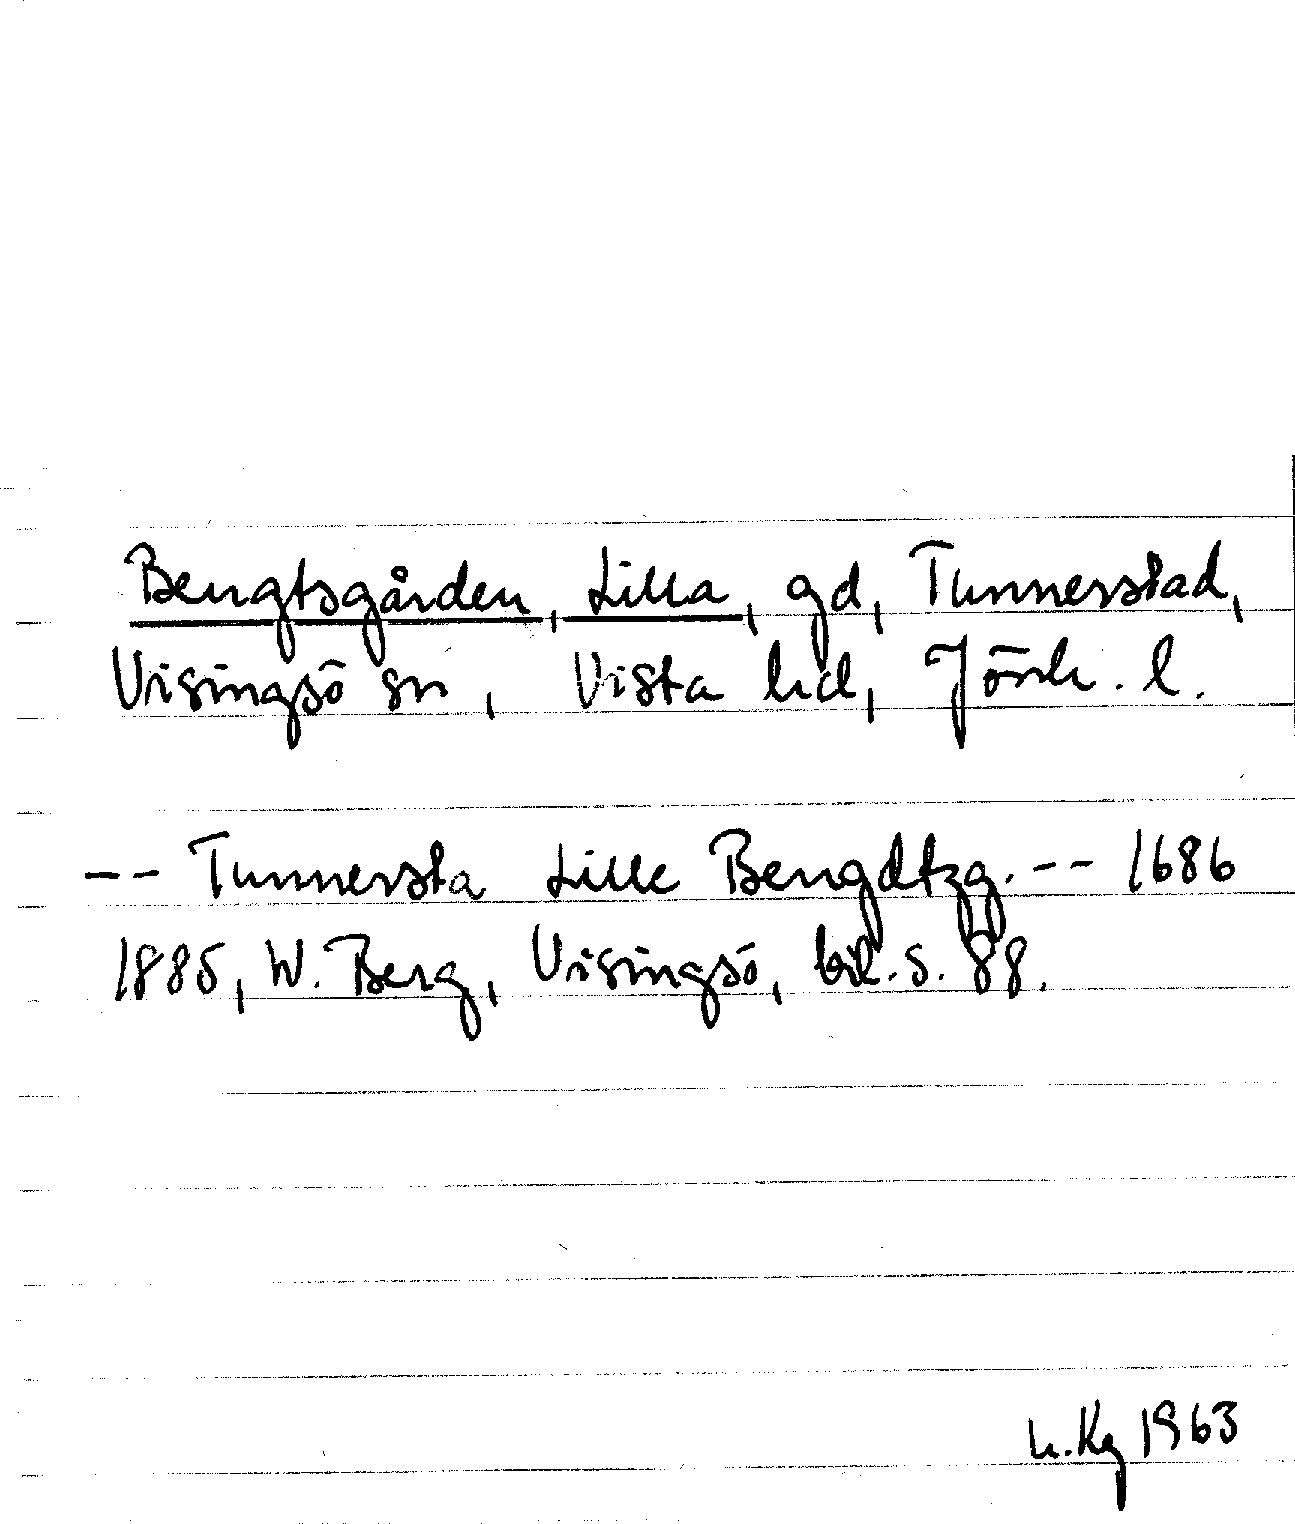 Bengtsgården, Lilla, gd, Tunnerstad,
Visingsö sn, Vista hd, Jönk. l.
-- Tunnersta Lille Bengdtzg. -- 1686
1885, W. Berg, Visingsö, bil. s. 88.
h.Kg 1963